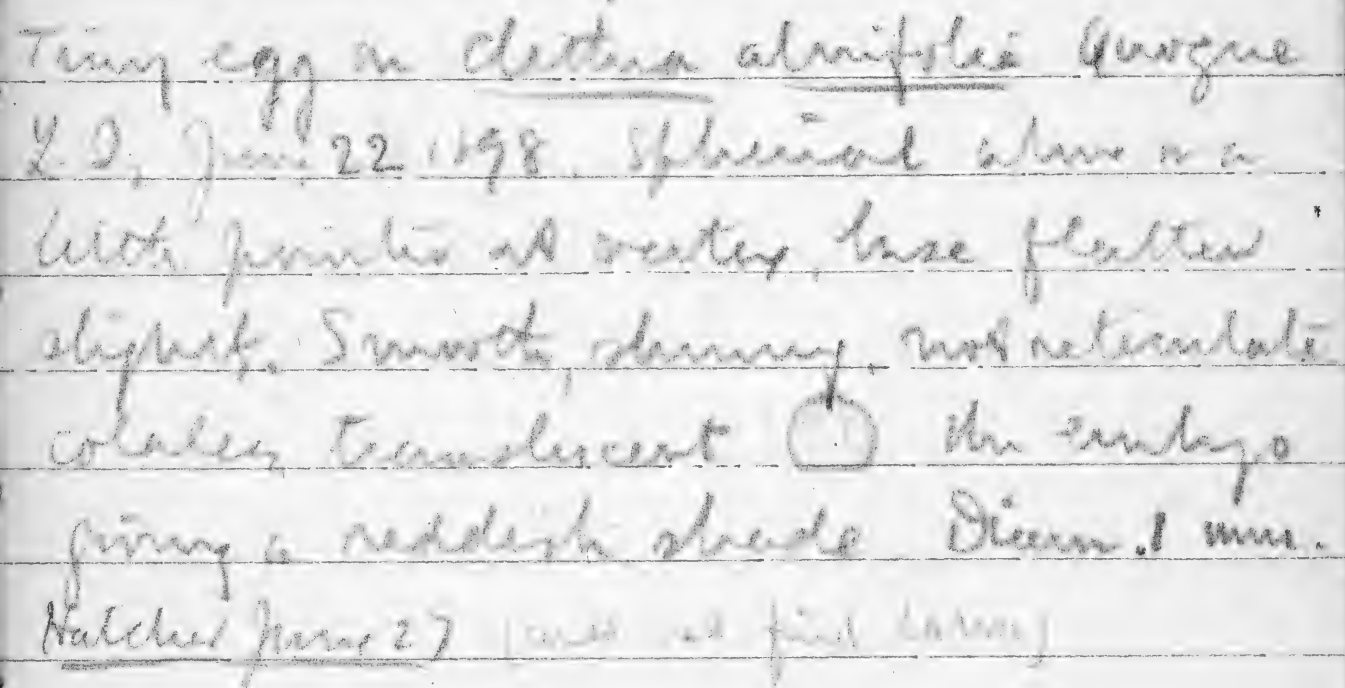 Tiny egg on Clethra alnifolia Quogue
L.I., June 22 1898. Spherical
with pointed at vertex, base flatten
slightly. Smooth, shining, not reticulate
colorless, translucent the embryo
giving a reddish shade Diam .1 mm.
Hatched June 27 (could not find larva)